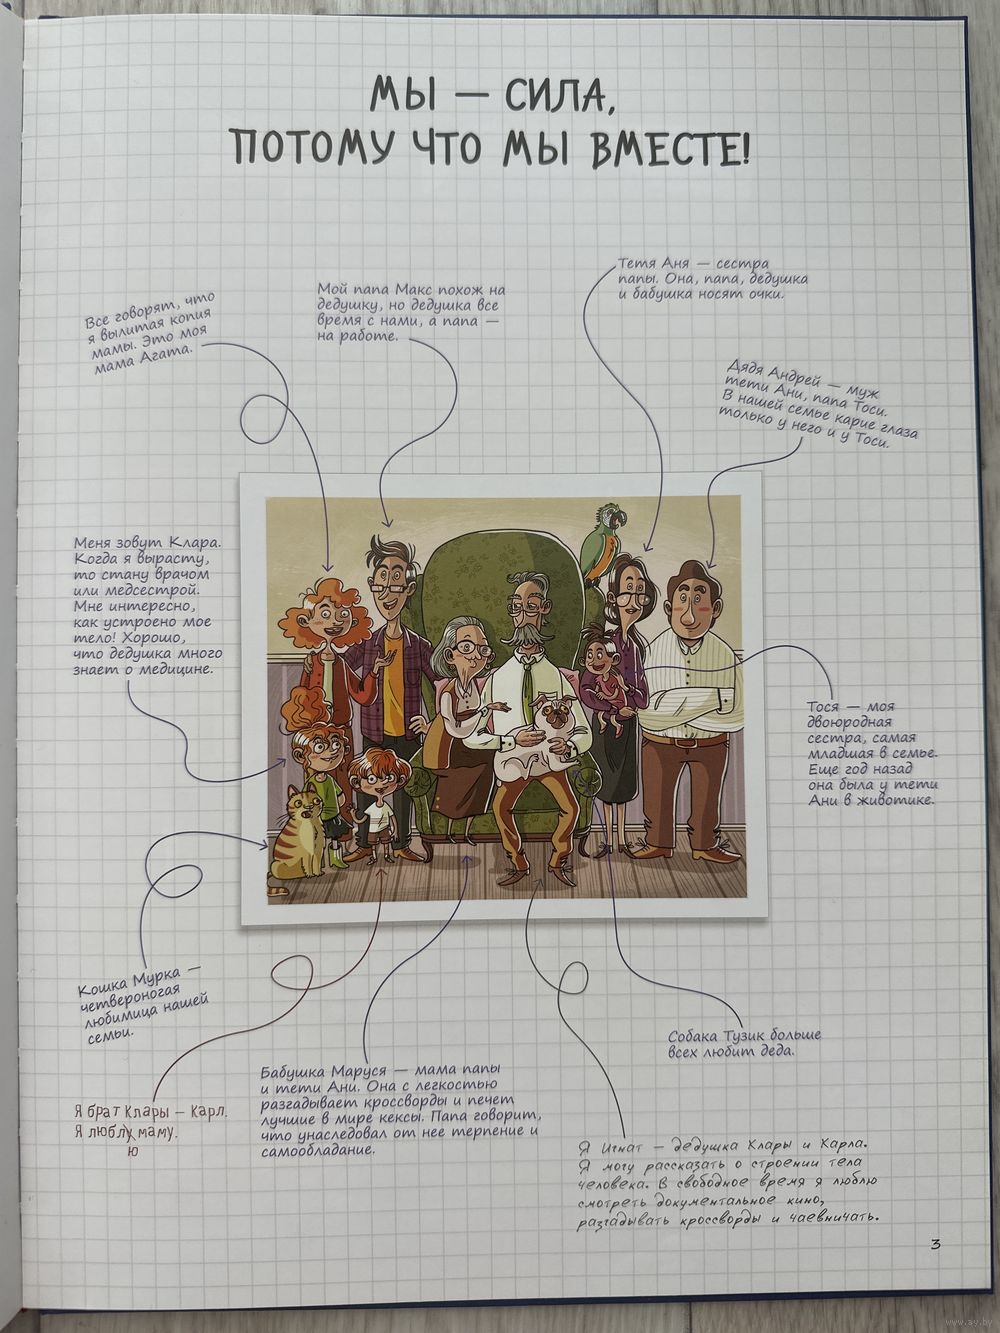 МЫ — СИЛА,
ПОТОМУ ЧТО МЫ ВМЕСТЕ!
Все говорят, что
я вылитая копия
мамы. Это моя
мама Агата.
Мой папа Макс похож на
дедушку, но дедушка все
время с нами, а папа —
на работе.
Тетя Аня — сестра
папы. Она, папа, дедушка
и бабушка носят очки.
Дядя Андрей — муж
тети Ани, папа Тоси.
В нашей семье карие глаза
только у него и у Тоси.
Меня зовут Клара.
Когда я вырасту,
то стану врачом
или медсестрой.
Мне интересно,
как устроено мое
тело! Хорошо,
что дедушка много
знает о медицине.
Тося — моя
двоюродная
сестра, самая
младшая в семье.
Еще год назад
она была у тети
Ани в животике.
Кошка Мурка —
четвероногая
любимица нашей
семьи.
Собака Тузик больше
всех любит деда.
Я брат Клары — Карл.
Я люблу маму.
ю
Бабушка Маруся — мама папы
и тети Ани. Она с легкостью
разгадывает кроссворды и печет
лучшие в мире кексы. Папа говорит,
что унаследовал от нее терпение и
самообладание.
Я Игнат — дедушка Клары и Карла.
Я могу рассказать о строении тела
человека. В свободное время я люблю
смотреть документальное кино,
разгадывать кроссворды и чаевничать.
3
www.ay.by